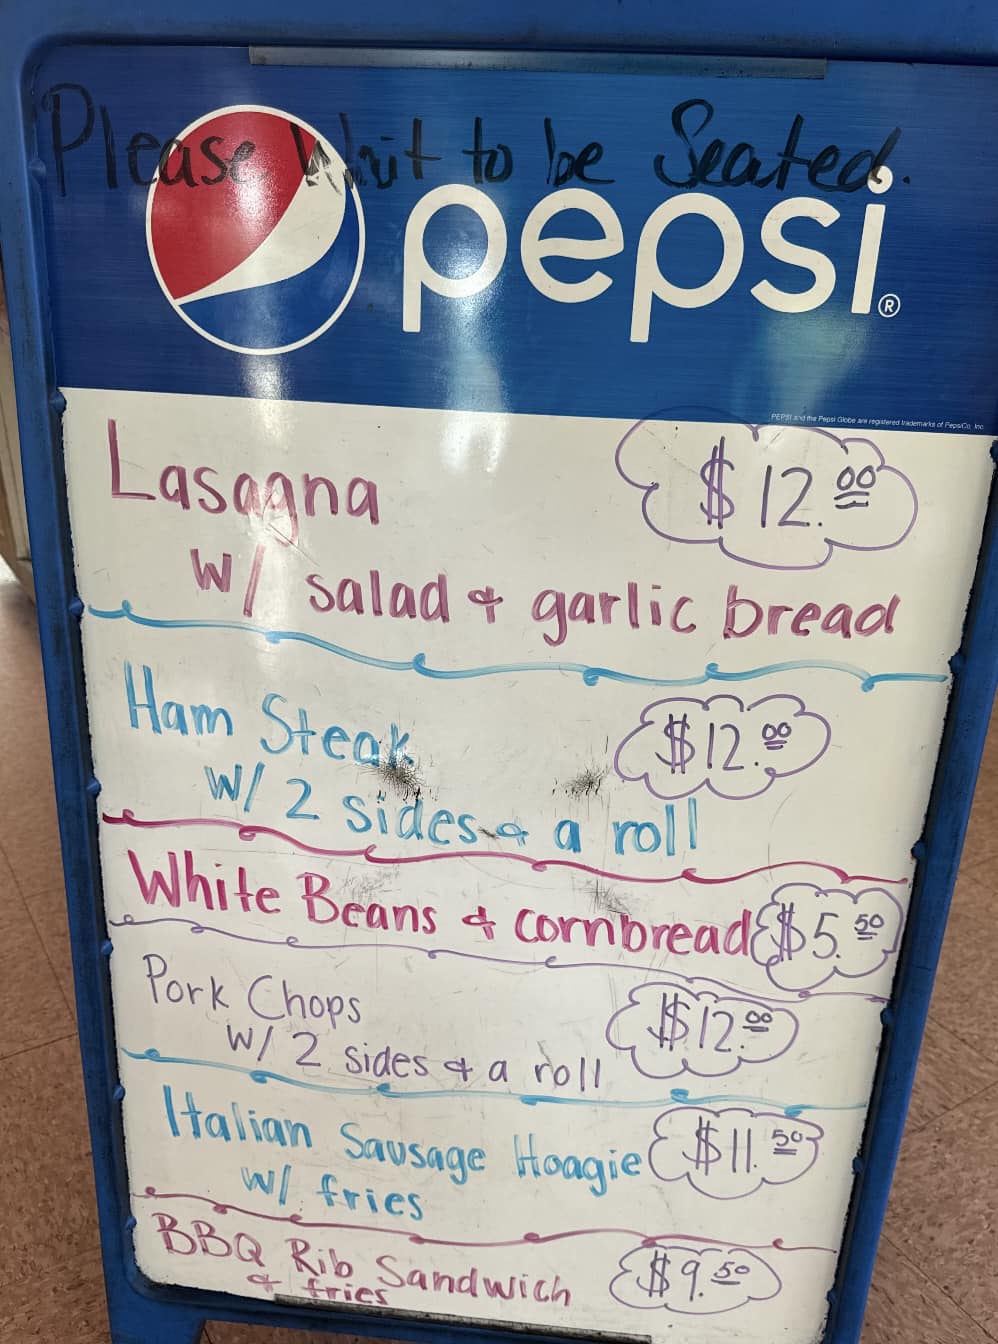 Please Wait to be Seated.
pepsi®
PEPSI and the Pepsi Globe are registered trademarks of PepsiCo, Inc.
Lasagna $12.00
w/ salad & garlic bread
Ham Steak $12.00
w/ 2 sides & a roll
White Beans & cornbread $5.50
Pork Chops $12.00
w/ 2 sides & a roll
Italian Sausage Hoagie $11.50
w/ fries
BBQ Rib Sandwich $9.50
& fries